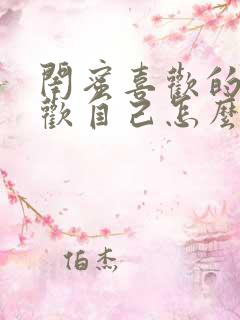 閨蜜喜歡的
歡自己怎麼
伯杰